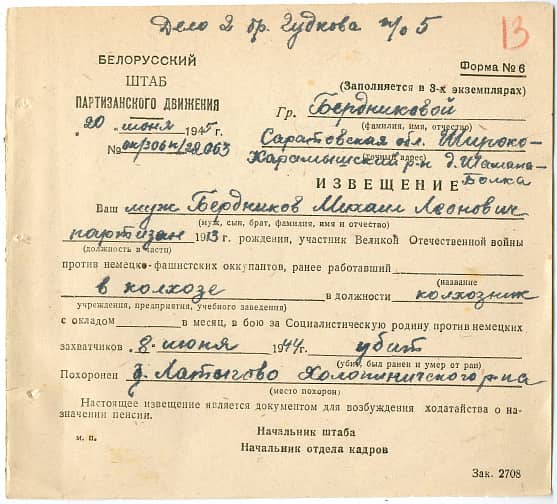 Дело 2 бр. Гудкова п/о 5
13
БЕЛОРУССКИЙ
ШТАБ
ПАРТИЗАНСКОГО ДВИЖЕНИЯ
„20 июня 1945 г.
№
Форма № 6
(Заполняется в 3-х экземплярах)
Гр. Бердниковой
(фамилия, имя, отчество)
Саратовская обл. Широко-
Карамышский р-н д.
(точный адрес)
ИЗВЕЩЕНИЕ
Ваш муж Бердников Михаил Леонович
(муж, сын, брат, фамилия, имя и отчество)
партизан 1913 г. рождения, участник Великой Отечественной войны
(должность в части)
против немецко-фашистских оккупантов, ранее работавший
в колхозе в должности колхозник
(название
учреждения, предприятия, учебного заведения)
с окладом в месяц, в бою за Социалистическую родину против немецких
захватчиков 8 июня 1944 г. убит
(убит, был ранен и умер от ран)
Похоронен д. Латыгово Холопиничского р-на
(место похорон)
Настоящее извещение является документом для возбуждения ходатайства о на-
значении пенсии.
Начальник штаба
м. п.
Начальник отдела кадров
Зак. 2708